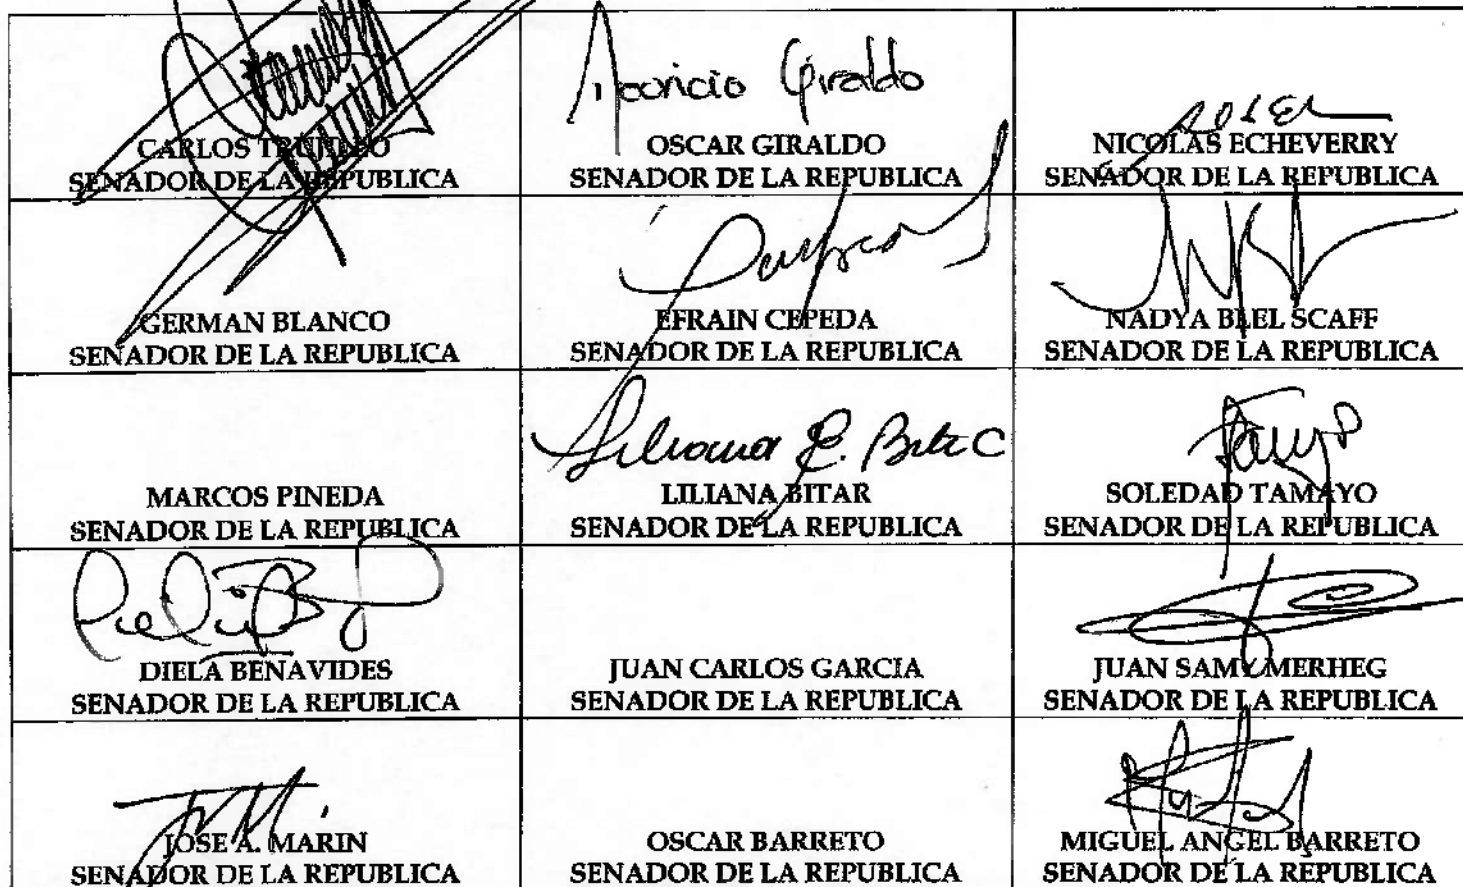 Mauricio Giraldo
CARLOS TRUJILLO
SENADOR DE LA REPUBLICA
OSCAR GIRALDO
SENADOR DE LA REPUBLICA
NICOLAS ECHEVERRY
SENADOR DE LA REPUBLICA
GERMAN BLANCO
SENADOR DE LA REPUBLICA
EFRAIN CEPEDA
SENADOR DE LA REPUBLICA
NADYA BLEL SCAFF
SENADOR DE LA REPUBLICA
Liliana E. Bitar C
MARCOS PINEDA
SENADOR DE LA REPUBLICA
LILIANA BITAR
SENADOR DE LA REPUBLICA
SOLEDAD TAMAYO
SENADOR DE LA REPUBLICA
DIELA BENAVIDES
SENADOR DE LA REPUBLICA
JUAN CARLOS GARCIA
SENADOR DE LA REPUBLICA
JUAN SAMY MERHEG
SENADOR DE LA REPUBLICA
JOSE A. MARIN
SENADOR DE LA REPUBLICA
OSCAR BARRETO
SENADOR DE LA REPUBLICA
MIGUEL ANGEL BARRETO
SENADOR DE LA REPUBLICA